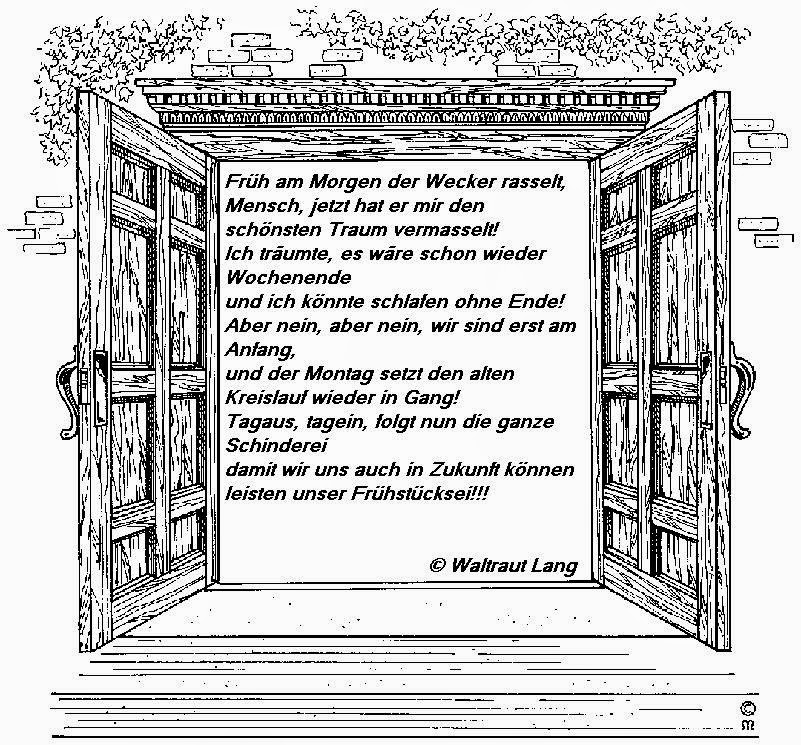 Früh am Morgen der Wecker rasselt,
Mensch, jetzt hat er mir den
schönsten Traum vermasselt!
Ich träumte, es wäre schon wieder
Wochenende
und ich könnte schlafen ohne Ende!
Aber nein, aber nein, wir sind erst am
Anfang,
und der Montag setzt den alten
Kreislauf wieder in Gang!
Tagaus, tagein, folgt nun die ganze
Schinderei
damit wir uns auch in Zukunft können
leisten unser Frühstücksei!!!
© Waltraut Lang
©